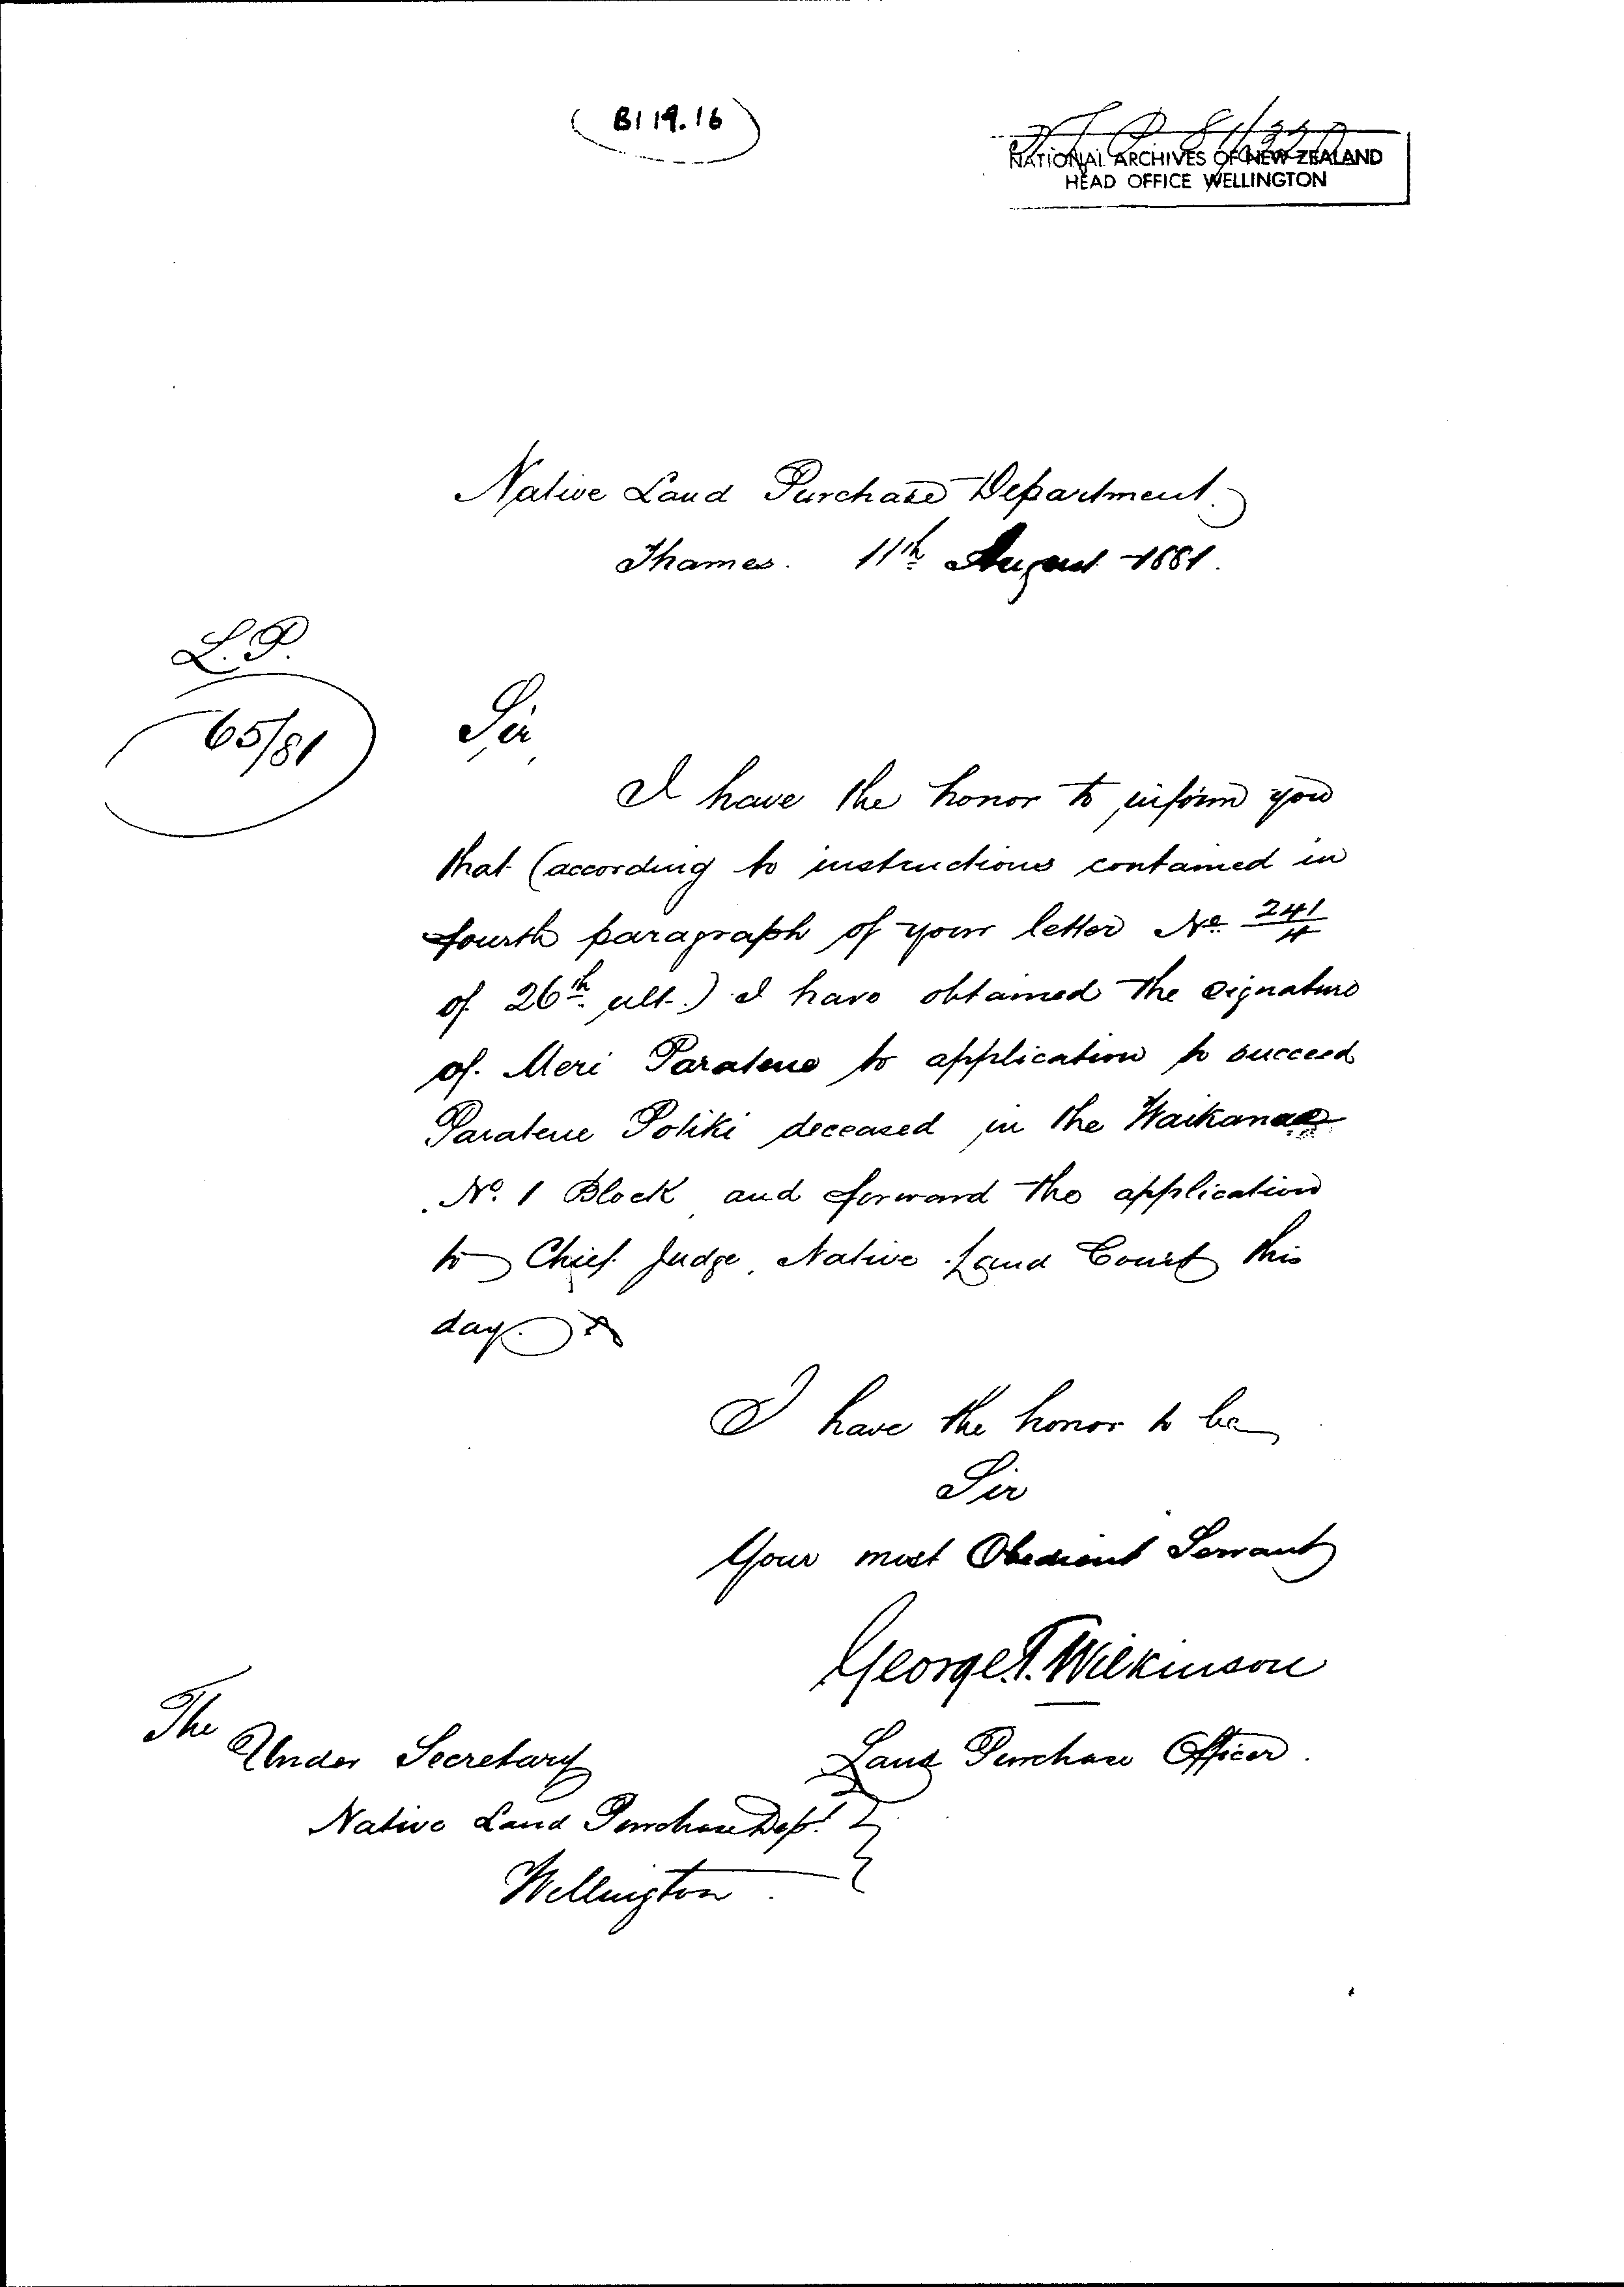 B119.16
NATIONAL ARCHIVES OF NEW ZEALAND
HEAD OFFICE WELLINGTON
Native Land Purchase Department.
Thames. 11th August 1881.
L.P.
65/81
Sir,
I have the honor to inform you
that (according to instructions contained in
fourth paragraph of your letter No. 241/4
of 26th ult.) I have obtained the signature
of Meri Paratene to application to succeed
Paratene Potiki deceased in the Waikanae
No. 1 Block, and forward the application
to Chief Judge, Native Land Court this
day.
I have the honor to be
Sir
Your most Obedient Servant
George T. Wilkinson
Land Purchase Officer.
The
Under Secretary
Native Land Purchase Dept.
Wellington.